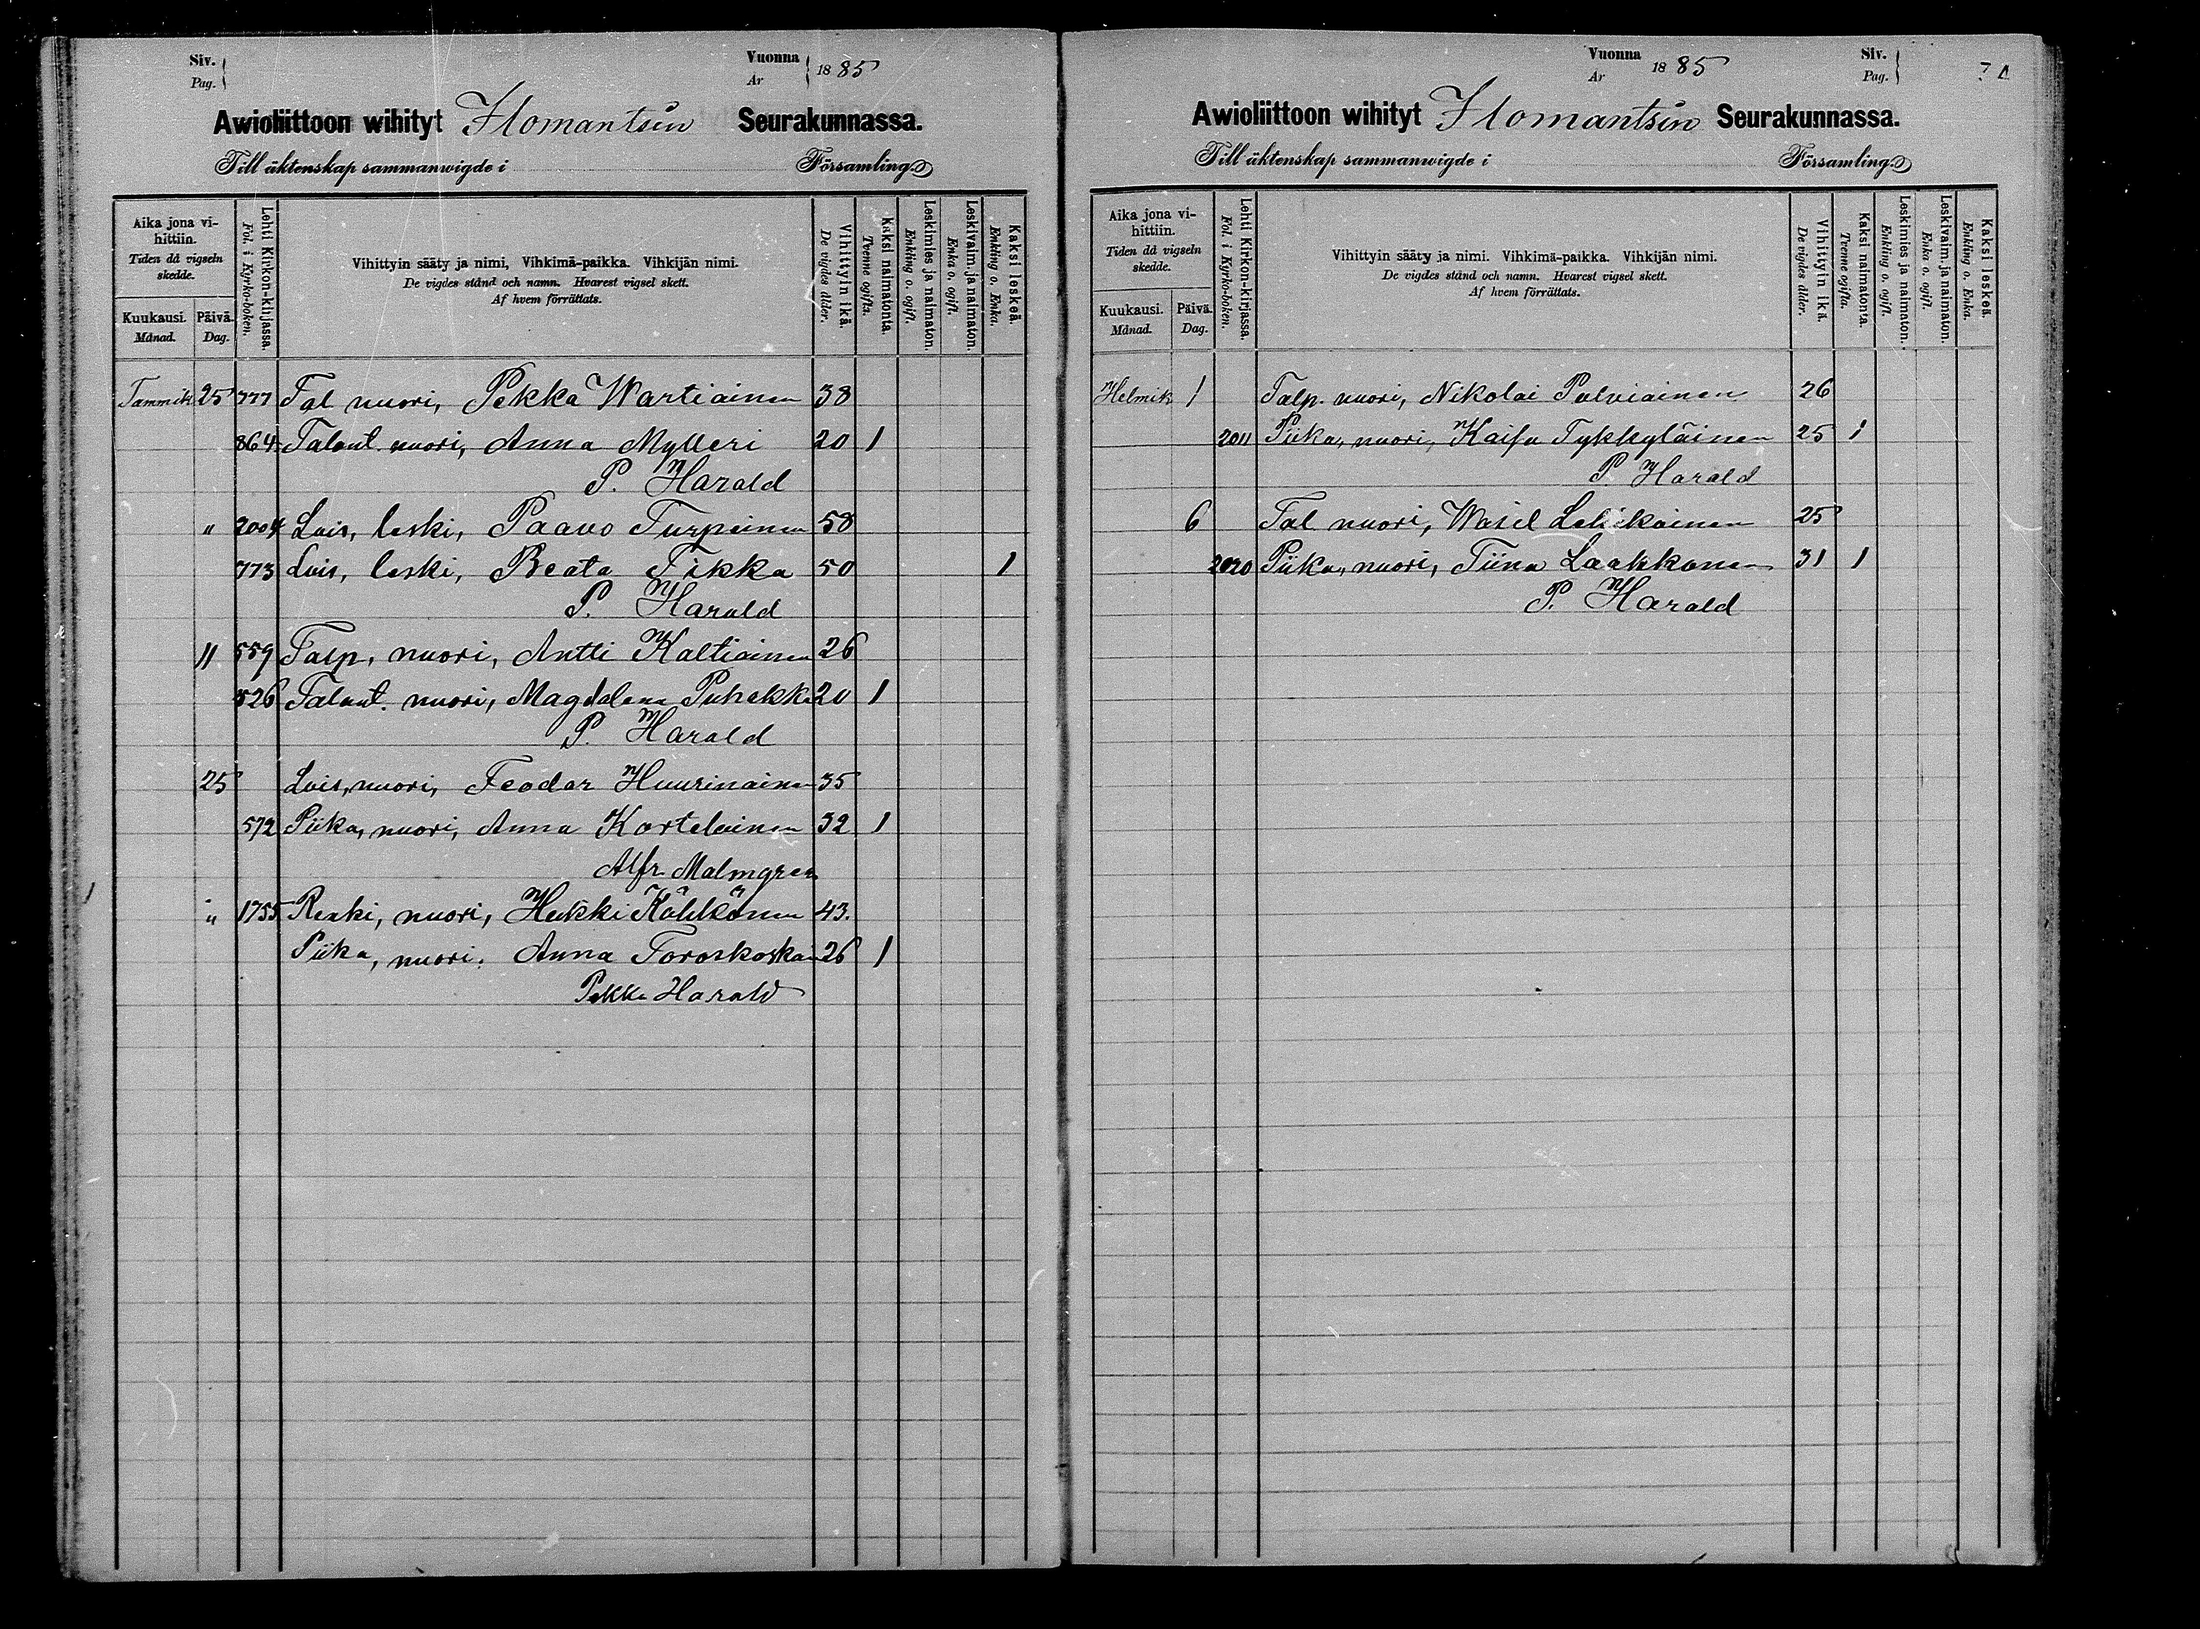 Siv.
Pag.
Vuonna
Ar
1885
Awioliittoon wihityt Ilomantsin Seurakunnassa.
Till äktenskap sammanwigde i Församling.
Aika jona vi-
hittiin.
Tiden då vigseln
skedde.
Kuukausi.
Månad.
Päivä.
Dag.
Lehti Kirkon-kirjassa.
Fol. i Kyrko-boken.
Vihittyin sääty ja nimi, Vihkimä-paikka. Vihkijän nimi.
De vigdes stånd och namn. Hvarest vigsel skett.
Af hvem förrättats.
Vihittyin ikä.
De vigdes ålder.
Kaksi naimatonta.
Tvenne ogifta.
Leskimies ja naimaton.
Enkling o. ogift.
Leskivaim. ja naimaton.
Enka o. ogift.
Kaksi leskeä.
Enkling o. Enka.
Tammik 25 777 Tal nuori, Pekka Wartiainen 38
864 Talont. nuori, Anna Mylleri 20 1
P. Harald
" 2004 Lois, leski, Paavo Turpeinen 58
773 Lois, leski, Beata Tikka 50 1
P. Harald
" 559 Talp, nuori, Antti Kaltiainen 26
526 Talont. nuori, Magdalena Puhakka 20 1
P. Harald
25 Lois, nuori, Feodor Huurinainen 35
572 Piika, nuori, Anna Kortelainen 32 1
Alfr Malmgren
" 1755 Renki, nuori, Heikki Kähkönen 43.
Piika, nuori. Anna Toroskoskai 26 1
Pekka Harald
Vuonna
Ar
1885
Siv.
Pag.
Awioliittoon wihityt Ilomantsin Seurakunnassa.
Till äktenskap sammanwigde i Församling.
Aika jona vi-
hittiin.
Tiden då vigseln
skedde.
Kuukausi.
Månad.
Päivä.
Dag.
Lehti Kirkon-kirjassa.
Fol. i Kyrko-boken.
Vihittyin sääty ja nimi. Vihkimä-paikka. Vihkijän nimi.
De vigdes stånd och namn. Hvarest vigsel skett.
Af hvem förrättats.
Vihittyin ikä.
De vigdes ålder.
Kaksi naimatonta.
Tvenne ogifta.
Leskimies ja naimaton.
Enkling o. ogift.
Leskivaim. ja naimaton.
Enka o. ogift.
Kaksi leskeä.
Enkling o. Enka.
Helmik 1 Talp. nuori, Nikolai Palviainen 26
2011 Piika, nuori, Kaisa Tykkyläinen 25 1
P Harald
6 Tal nuori, Wasil Lehikoinen 25
2020 Piika, nuori, Tiina Laakkonen 31 1
P. Harald